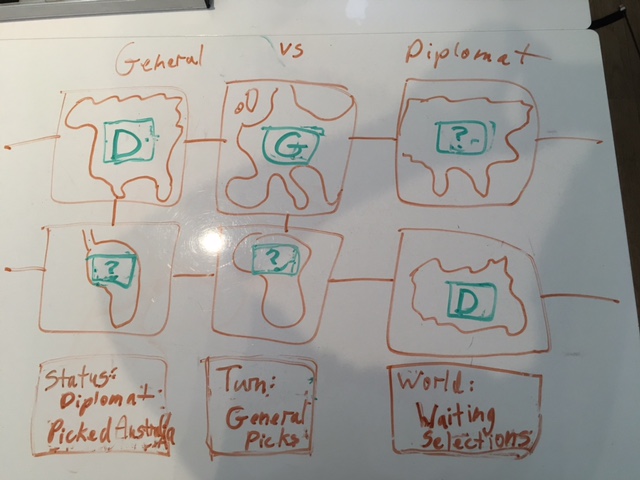 General vs Diplomat
D G ?
? ? D
Status:
Diplomat
Picked Australia
Turn:
General
Picks
World:
Waiting
Selections